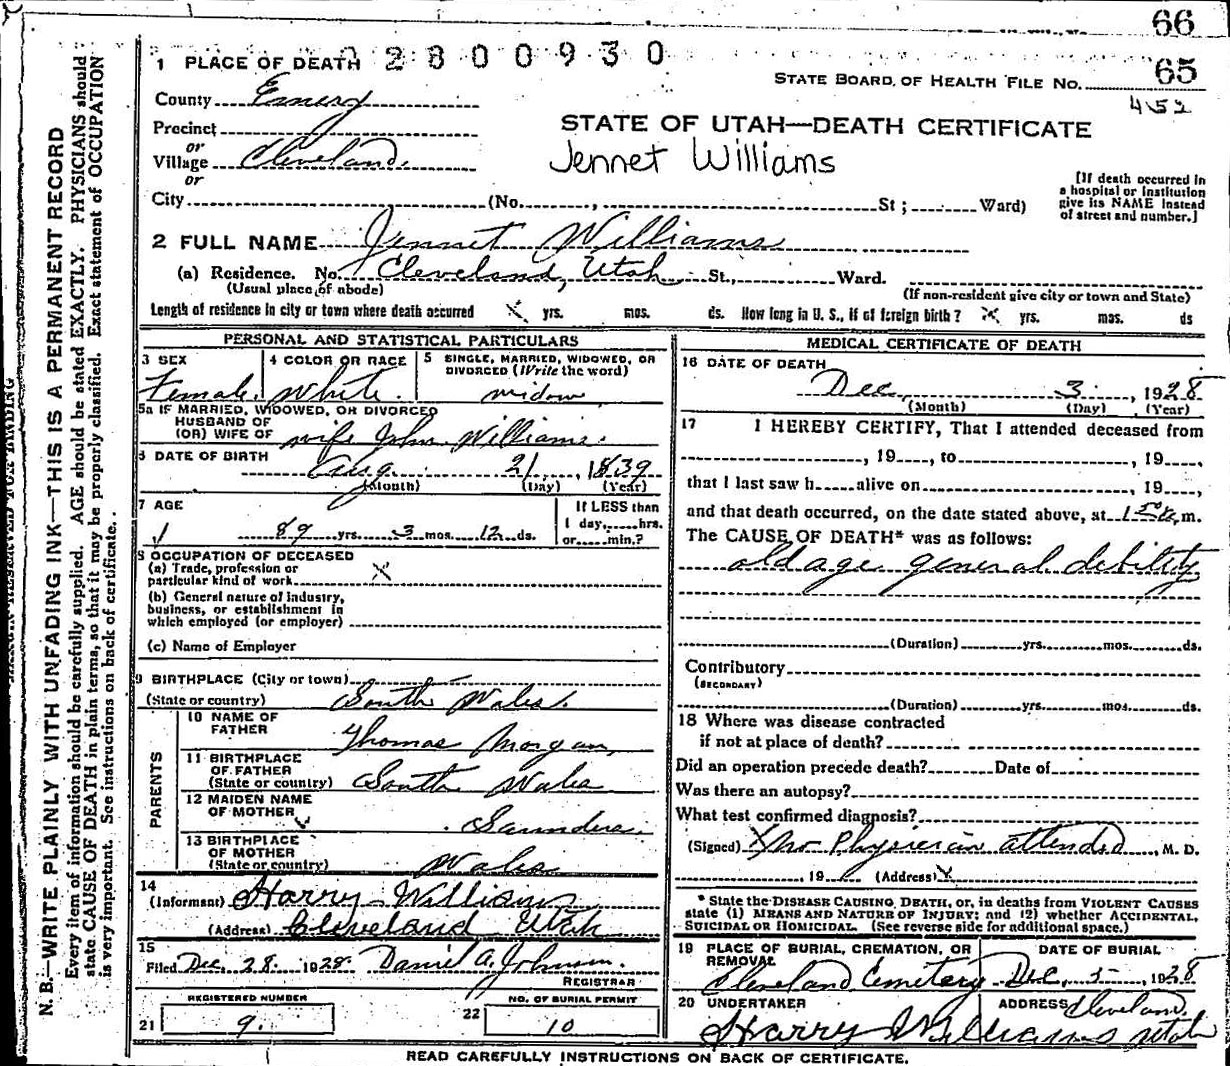 66
1 PLACE OF DEATH 02800930
STATE BOARD OF HEALTH FILE NO. 65
452
County Emery
STATE OF UTAH—DEATH CERTIFICATE
Precinct
or
Village Cleveland.
Jennet Williams
or
City (No. , St ; Ward)
[If death occurred in
a hospital or institution
give its NAME instead
of street and number.]
2 FULL NAME Jennet Williams
(a) Residence. No. Cleveland, Utah St., Ward.
(Usual place of abode)
(If non-resident give city or town and State)
Length of residence in city or town where death occurred X yrs. mos. ds. How long in U. S., if of foreign birth? X yrs. mos. ds
PERSONAL AND STATISTICAL PARTICULARS
3 SEX
Female.
4 COLOR OR RACE
White.
5 SINGLE, MARRIED, WIDOWED, OR
DIVORCED (Write the word)
widow
5a IF MARRIED, WIDOWED, OR DIVORCED
HUSBAND OF
(OR) WIFE OF wife John Williams.
6 DATE OF BIRTH
Aug. 21, 1839
(Month) (Day) (Year)
7 AGE
89 yrs. 3 mos. 12 ds.
If LESS than
1 day, hrs.
or min.?
8 OCCUPATION OF DECEASED
(a) Trade, profession or
particular kind of work X
(b) General nature of industry,
business, or establishment in
which employed (or employer)
(c) Name of Employer
9 BIRTHPLACE (City or town)
(State or country) South Wales.
PARENTS
10 NAME OF
FATHER Thomas Morgan,
11 BIRTHPLACE
OF FATHER
(State or country) South Wales
12 MAIDEN NAME
OF MOTHER Saunders.
13 BIRTHPLACE
OF MOTHER
(State or country) Wales
14
(Informant) Harry Williams
(Address) Cleveland Utah
15
Filed Dec. 28. 1928 Daniel A. Johnson.
REGISTRAR
REGISTERED NUMBER
21 9.
NO. OF BURIAL PERMIT
22 10
MEDICAL CERTIFICATE OF DEATH
16 DATE OF DEATH
Dec. 3, 1928
(Month) (Day) (Year)
17 I HEREBY CERTIFY, That I attended deceased from
, 19 , to , 19 ,
that I last saw h alive on , 19 ,
and that death occurred, on the date stated above, at m.
The CAUSE OF DEATH* was as follows:
old age general debility
(Duration) yrs. mos. ds.
Contributory
(SECONDARY)
(Duration) yrs. mos. ds.
18 Where was disease contracted
if not at place of death?
Did an operation precede death? Date of
Was there an autopsy?
What test confirmed diagnosis?
(Signed) X No Physician attended, M. D.
, 19 (Address)
* State the DISEASE CAUSING DEATH, or, in deaths from VIOLENT CAUSES
state (1) MEANS AND NATURE OF INJURY; and (2) whether ACCIDENTAL,
SUICIDAL OR HOMICIDAL. (See reverse side for additional space.)
19 PLACE OF BURIAL, CREMATION, OR
REMOVAL
Cleveland Cemetery
DATE OF BURIAL
Dec. 5- 1928
20 UNDERTAKER
Harry Williams
ADDRESS Cleveland
Utah
READ CAREFULLY INSTRUCTIONS ON BACK OF CERTIFICATE.
N. B.—WRITE PLAINLY WITH UNFADING INK—THIS IS A PERMANENT RECORD
Every item of information should be carefully supplied. AGE should be stated EXACTLY. PHYSICIANS should
state CAUSE OF DEATH in plain terms, so that it may be properly classified. Exact statement of OCCUPATION
is very important. See instructions on back of certificate.